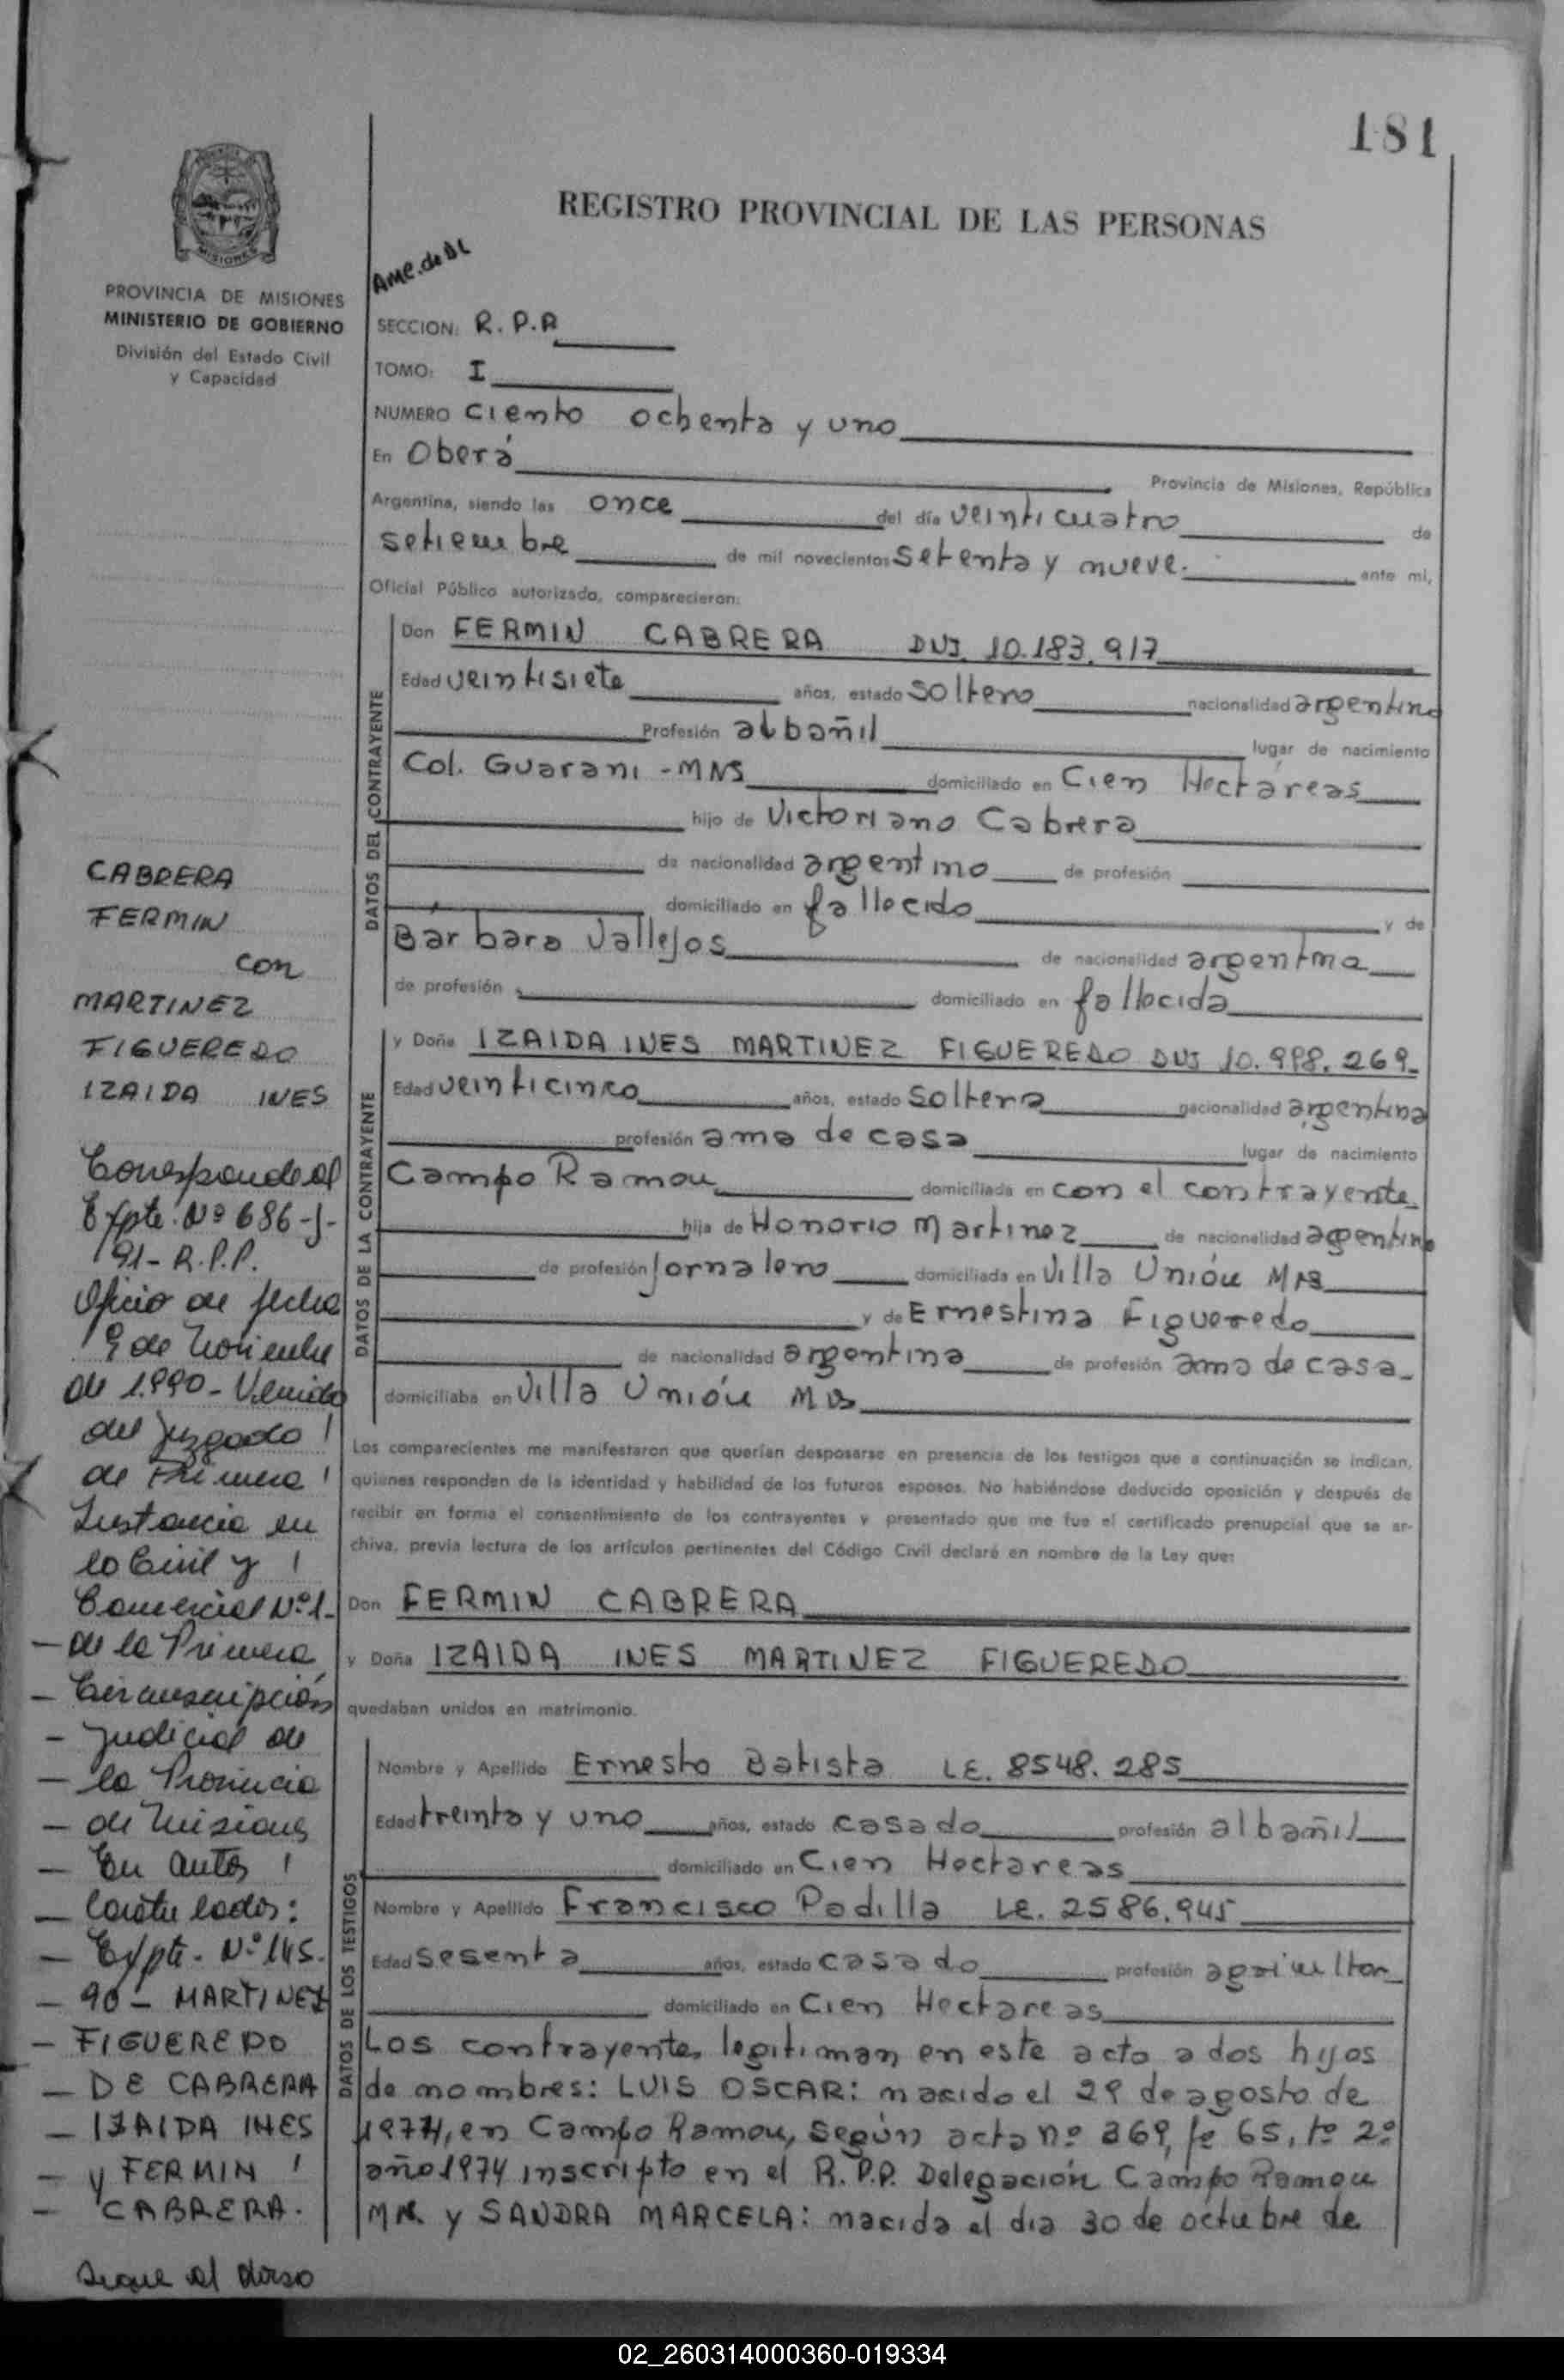 181
REGISTRO PROVINCIAL DE LAS PERSONAS
MISIONES
PROVINCIA DE MISIONES
MINISTERIO DE GOBIERNO
División del Estado Civil
y Capacidad
SECCION: R.P.A
TOMO: I
NUMERO Ciento ochenta y uno
En Oberá Provincia de Misiones, República
Argentina, siendo las once del día veinticuatro de
setiembre de mil novecientos setenta y nueve. ante mi,
Oficial Público autorizado, comparecieron:
DATOS DEL CONTRAYENTE
Don FERMIN CABRERA DNI. 10.183.917
Edad veintisiete años, estado soltero nacionalidad argentino
Profesión albañil lugar de nacimiento
Col. Guarani - MNS domiciliado en Cien Hectáreas
hijo de Victoriano Cabrera
de nacionalidad argentino de profesión
domiciliado en fallecido y de
Bárbara Vallejos de nacionalidad argentina
de profesión domiciliado en fallecida
DATOS DE LA CONTRAYENTE
y Doña IZAIDA INES MARTINEZ FIGUEREDO DNI 10.998.269
Edad veinticinco años, estado soltera nacionalidad argentina
profesión ama de casa lugar de nacimiento
Campo Ramon domiciliada en con el contrayente
hija de Honorio Martinez de nacionalidad argentino
de profesión Jornalero domiciliada en Villa Unión MNS
y de Ernestina Figueredo
de nacionalidad argentina de profesión ama de casa
domiciliaba en Villa Unión MNS
Los comparecientes me manifestaron que querían desposarse en presencia de los testigos que a continuación se indican,
quienes responden de la identidad y habilidad de los futuros esposos. No habiéndose deducido oposición y después de
recibir en forma el consentimiento de los contrayentes y presentado que me fue el certificado prenupcial que se ar-
chiva, previa lectura de los artículos pertinentes del Código Civil declaré en nombre de la Ley que:
Don FERMIN CABRERA
y Doña IZAIDA INES MARTINEZ FIGUEREDO
quedaban unidos en matrimonio.
DATOS DE LOS TESTIGOS
Nombre y Apellido Ernesto Batista LE. 8548.285
Edad treinta y uno años, estado casado profesión albañil
domiciliado en Cien Hectareas
Nombre y Apellido Francisco Padilla LE. 2586.945
Edad sesenta años, estado casado profesión agricultor
domiciliado en Cien Hectareas
Los contrayentes legitiman en este acto a dos hijos
de nombres: LUIS OSCAR: nacido el 29 de agosto de
1974, en Campo Ramon, según acta nº 369, fº 65, tº 2º
año 1974 inscripto en el R.P.P. Delegación Campo Ramon
MNS. y SANDRA MARCELA: nacida el dia 30 de octubre de
CABRERA
FERMIN
con
MARTINEZ
FIGUEREDO
IZAIDA INES
Corresponde al
Expte. Nº 686-J-
91- R.P.P.
Oficio de fecha
19 de Noviembre
de 1.990 - Venido
del Juzgado
de Primera
Instancia en
lo Civil y
Comercial Nº 1-
- de la Primera
- Circunscripción
- Judicial de
- la Provincia
- de Misiones
- En autos
- Caratulados:
- Expte. Nº 145.
- 90 - MARTINEZ
- FIGUEREDO
- DE CABRERA
- IZAIDA INES
- y FERMIN
- CABRERA.
Sigue al dorso
02_260314000360-019334